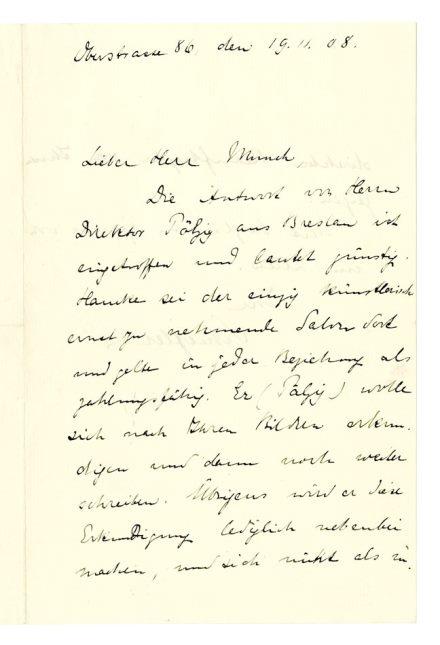 Oberstrasse 86, den 19.11.08.
Lieber Herr Munch
Die Antwort von Herrn
Direktor Pölzig aus Breslau ist
eingetroffen und lautet günstig.
Hancke sei der einzig künstlerisch
ernst zu nehmende Salon dort
und gelte in jeder Beziehung als
zahlungsfähig. Er (Pölzig) wolle
sich nach Ihren Bildern erkun-
digen und dann noch weiter
schreiben. Übrigens wird er diese
Erkundigung lediglich nebenbei
machen, und sich nicht als in-